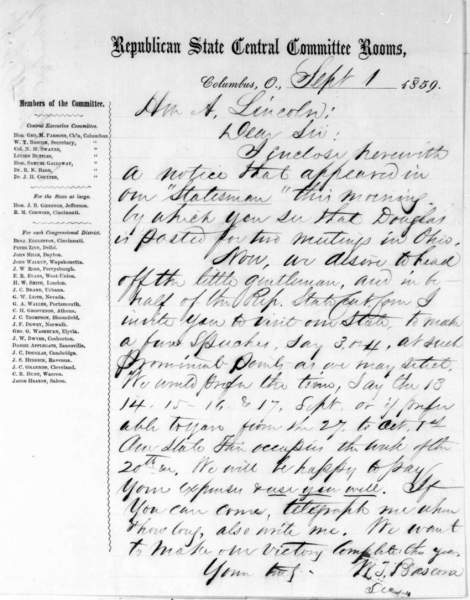 Republican State Central Committee Rooms,
Columbus, O., Sept 1 1859.
Members of the Committee.
Central Executive Committee.
Hon. Geo. M. Parsons, Ch'n, Columbus
W. T. Bascom, Secretary, "
Col. N. H. Swayne, "
Luther Donaldson, "
Hon. Samuel Galloway, "
For the State at large.
Cincinnati.
R. M. Corwine, Cincinnati.
For each Congressional District.
Benj. Eggleston, Cincinnati.
Peter Zinn, Delhi.
John Mills, Dayton.
John Walkup, Wapakonetta.
J. W. Ross, Perrysburgh.
West Union.
H. W. Smith, London.
J. C. Urbana.
G. W. Leith, Nevada.
G. A. Waller, Portsmouth.
C. H. Grosvenor, Athens.
J. C. Thompson, Bloomfield.
J. F. Dewey, Norwalk.
Geo. G. Washburn, Elyria.
J. W. Dwyer, Coshocton.
Daniel Applegate, Zanesville.
J. C. Douglas, Cambridge.
J. S. Herrick, Ravenna.
J. C. Grannis, Cleveland.
C. E. Hunt, Warren.
Jacob Heaton, Salem.
Hon A. Lincoln:
Dear Sir:
I inclose herewith
a notice that appeared in
our "Statesman" this morning.
by which you see that Douglas
is posted for two meetings in Ohio.
Now, we desire to head
off the little gentleman, and in be-
half of the Rep. State Cent. Com I
invite you to visit our State, to make
a few Speeches, say 3 or 4, at such
Prominent Points as we may select.
We would prefer the time, say the 13
14. 15 - 16. & 17. Sept. or if prefer
able to you from the 27. to Oct. 1st
Our State Fair occupies the week of the
20th in. We will be happy to pay
your expenses & use you well. If
You can come, telegraph me when
& how long, also write me. We want
to make our victory complete this year.
Yours truly W. T. Bascom
Secy